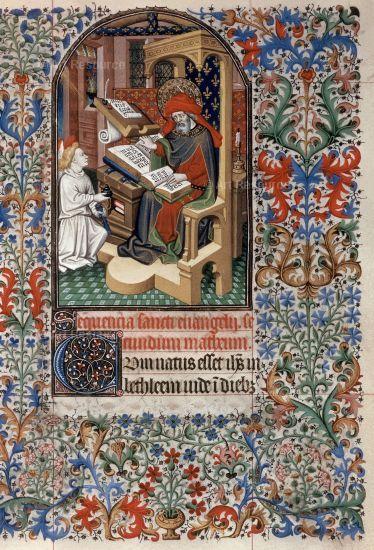 Art Resource
Sequencia sancti euangelij. se
cundum matheum.
Cum natus esset ihs in
bethleem iude ī diebꝫ